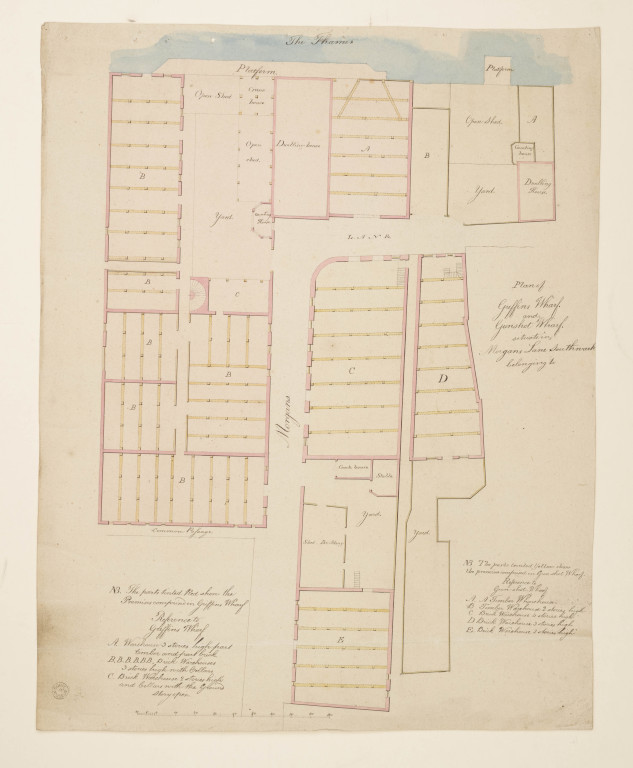 The Thames
Platform
Platform
Open Shed
Crane house
Open Shed
A
Open shed
Dwelling house
A
B
Counting house
B
Dwelling House
Yard
Yard
Counting House
L A N E
B
C
Plan of
Griffins Wharf
and
Gunshot Wharf
situate in
Morgans Lane Southwark
belonging to
B
B
C
D
B
Morgans
B
Coach house
Stable
Yard
Yard
Common Passage
NB. The parts tinted Red shew the
Premises comprised in Griffins Wharf
Reference to
Griffins Wharf
A Warehouse 3 stories high front
timber and part brick
B.B.B.B.B. Brick Warehouses
3 stories high with Cellars
C Brick Warehouse 3 stories high
and Cellars with the Ground
story open
NB The parts tinted Yellow shew
the premises comprised in Gun shot Wharf
Reference to
Gun shot Wharf
A A Timber Warehouse
B Timber Warehouse 2 stories high
C Brick Warehouse 3 stories high
D Brick Warehouse 3 stories high
E Brick Warehouse 3 stories high
E